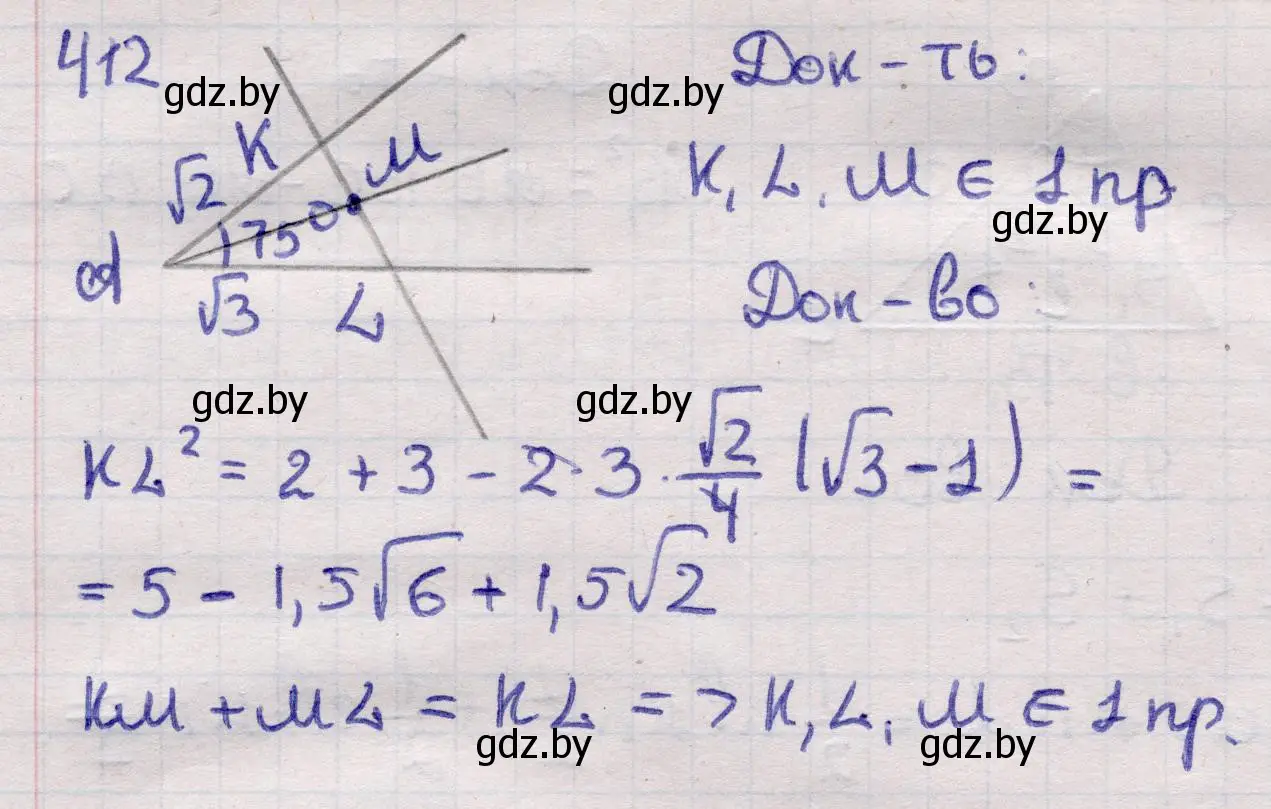 412
gdz.by
gdz.by
Док-ть:
K
M
√2
K, L, M ∈ 1 пр
gdz.by
75°
d
√3
L
Док-во:
gdz.by
gdz.by
KL² = 2 + 3 - 2·3·√2/4 (√3-1) =
= 5 - 1,5√6 + 1,5√2
KM + ML = KL => K, L, M ∈ 1 пр.
gdz.by
gdz.by